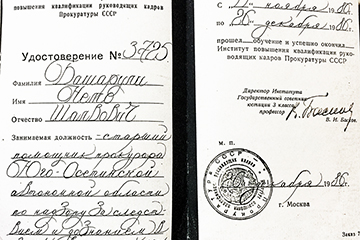 повышения квалификации руководящих кадров
Прокуратуры СССР
Удостоверение № 3795
Фамилия Башарули
Имя Нетв
Отчество Шотович
Занимаемая должность - старший
помощник прокурора
Юго-Осетинской
автономной области
по надзору за следст-
вием и дознанием
С ноября 1980 г.
по декабря 1980 г.
прошел обучение и успешно окончил
Институт повышения квалификации руко-
водящих кадров Прокуратуры СССР
Директор Института
Государственный советник
юстиции 3 класса
профессор
М. П.
декабря 1980 г.
г. Москва